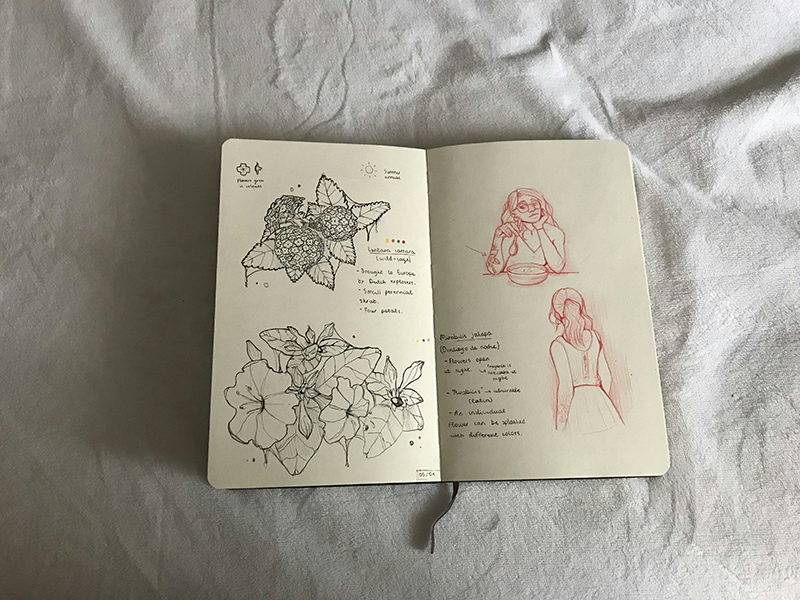 Flowers grow
in
Summer
annual
Lantana camara
(wild-sage)
- Brought to Europe
by Dutch explorers.
- Small perennial
shrub.
- Four petals.
05/01
Mirabilis jalapa
(Dondiego de noche)
- Flowers open
at night. ↳ fragrance is
noticeable at
night
- "Mirabilis" →
(Latin)
- An individual
flower can be splashed
with different colors.